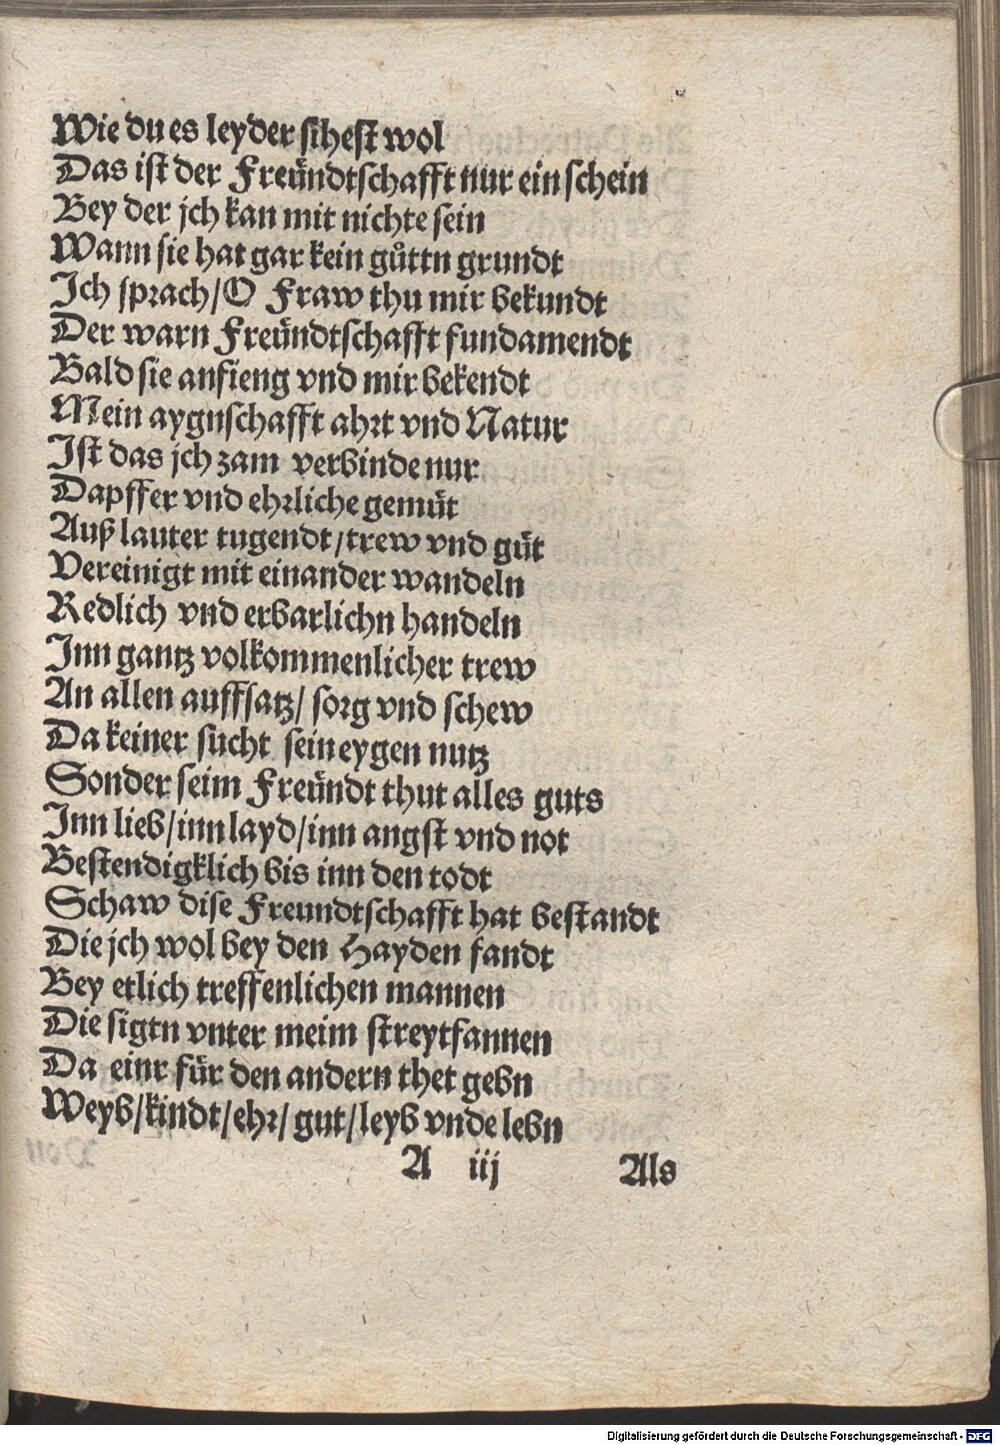 Wie du es leyder sihest wol
Das ist der Freündtschafft nur ein schein
Bey der jch kan mit nichte sein
Wann sie hat gar kein gůttn grundt
Ich sprach/ O Fraw thu mir bekundt
Der warn Freündtschafft fundamendt
Bald sie anfieng vnd mir bekendt
Mein aygnschafft ahrt vnd Natur
Ist das jch zam verbinde nur
Dapffer vnd ehrliche gemüt
Auß lauter tugendt/ trew vnd güt
Vereinigt mit einander wandeln
Redlich vnd erbarlichn handeln
Inn gantz volkommenlicher trew
An allen auffsatz/ sorg vnd schew
Da keiner sucht sein eygen nutz
Sonder seim Freündt thut alles guts
Inn lieb/ inn layd/ inn angst vnd not
Bestendigklich bis inn den todt
Schaw dise Freundtschafft hat bestandt
Die jch wol bey den Hayden fandt
Bey etlich treffenlichen mannen
Die sigtn vnter meim streytfannen
Da einr für den andern thet gebn
Weyb/ kindt/ ehr/ gut/ leyb vnde lebn
A iij Als
Digitalisierung gefördert durch die Deutsche Forschungsgemeinschaft - DFG